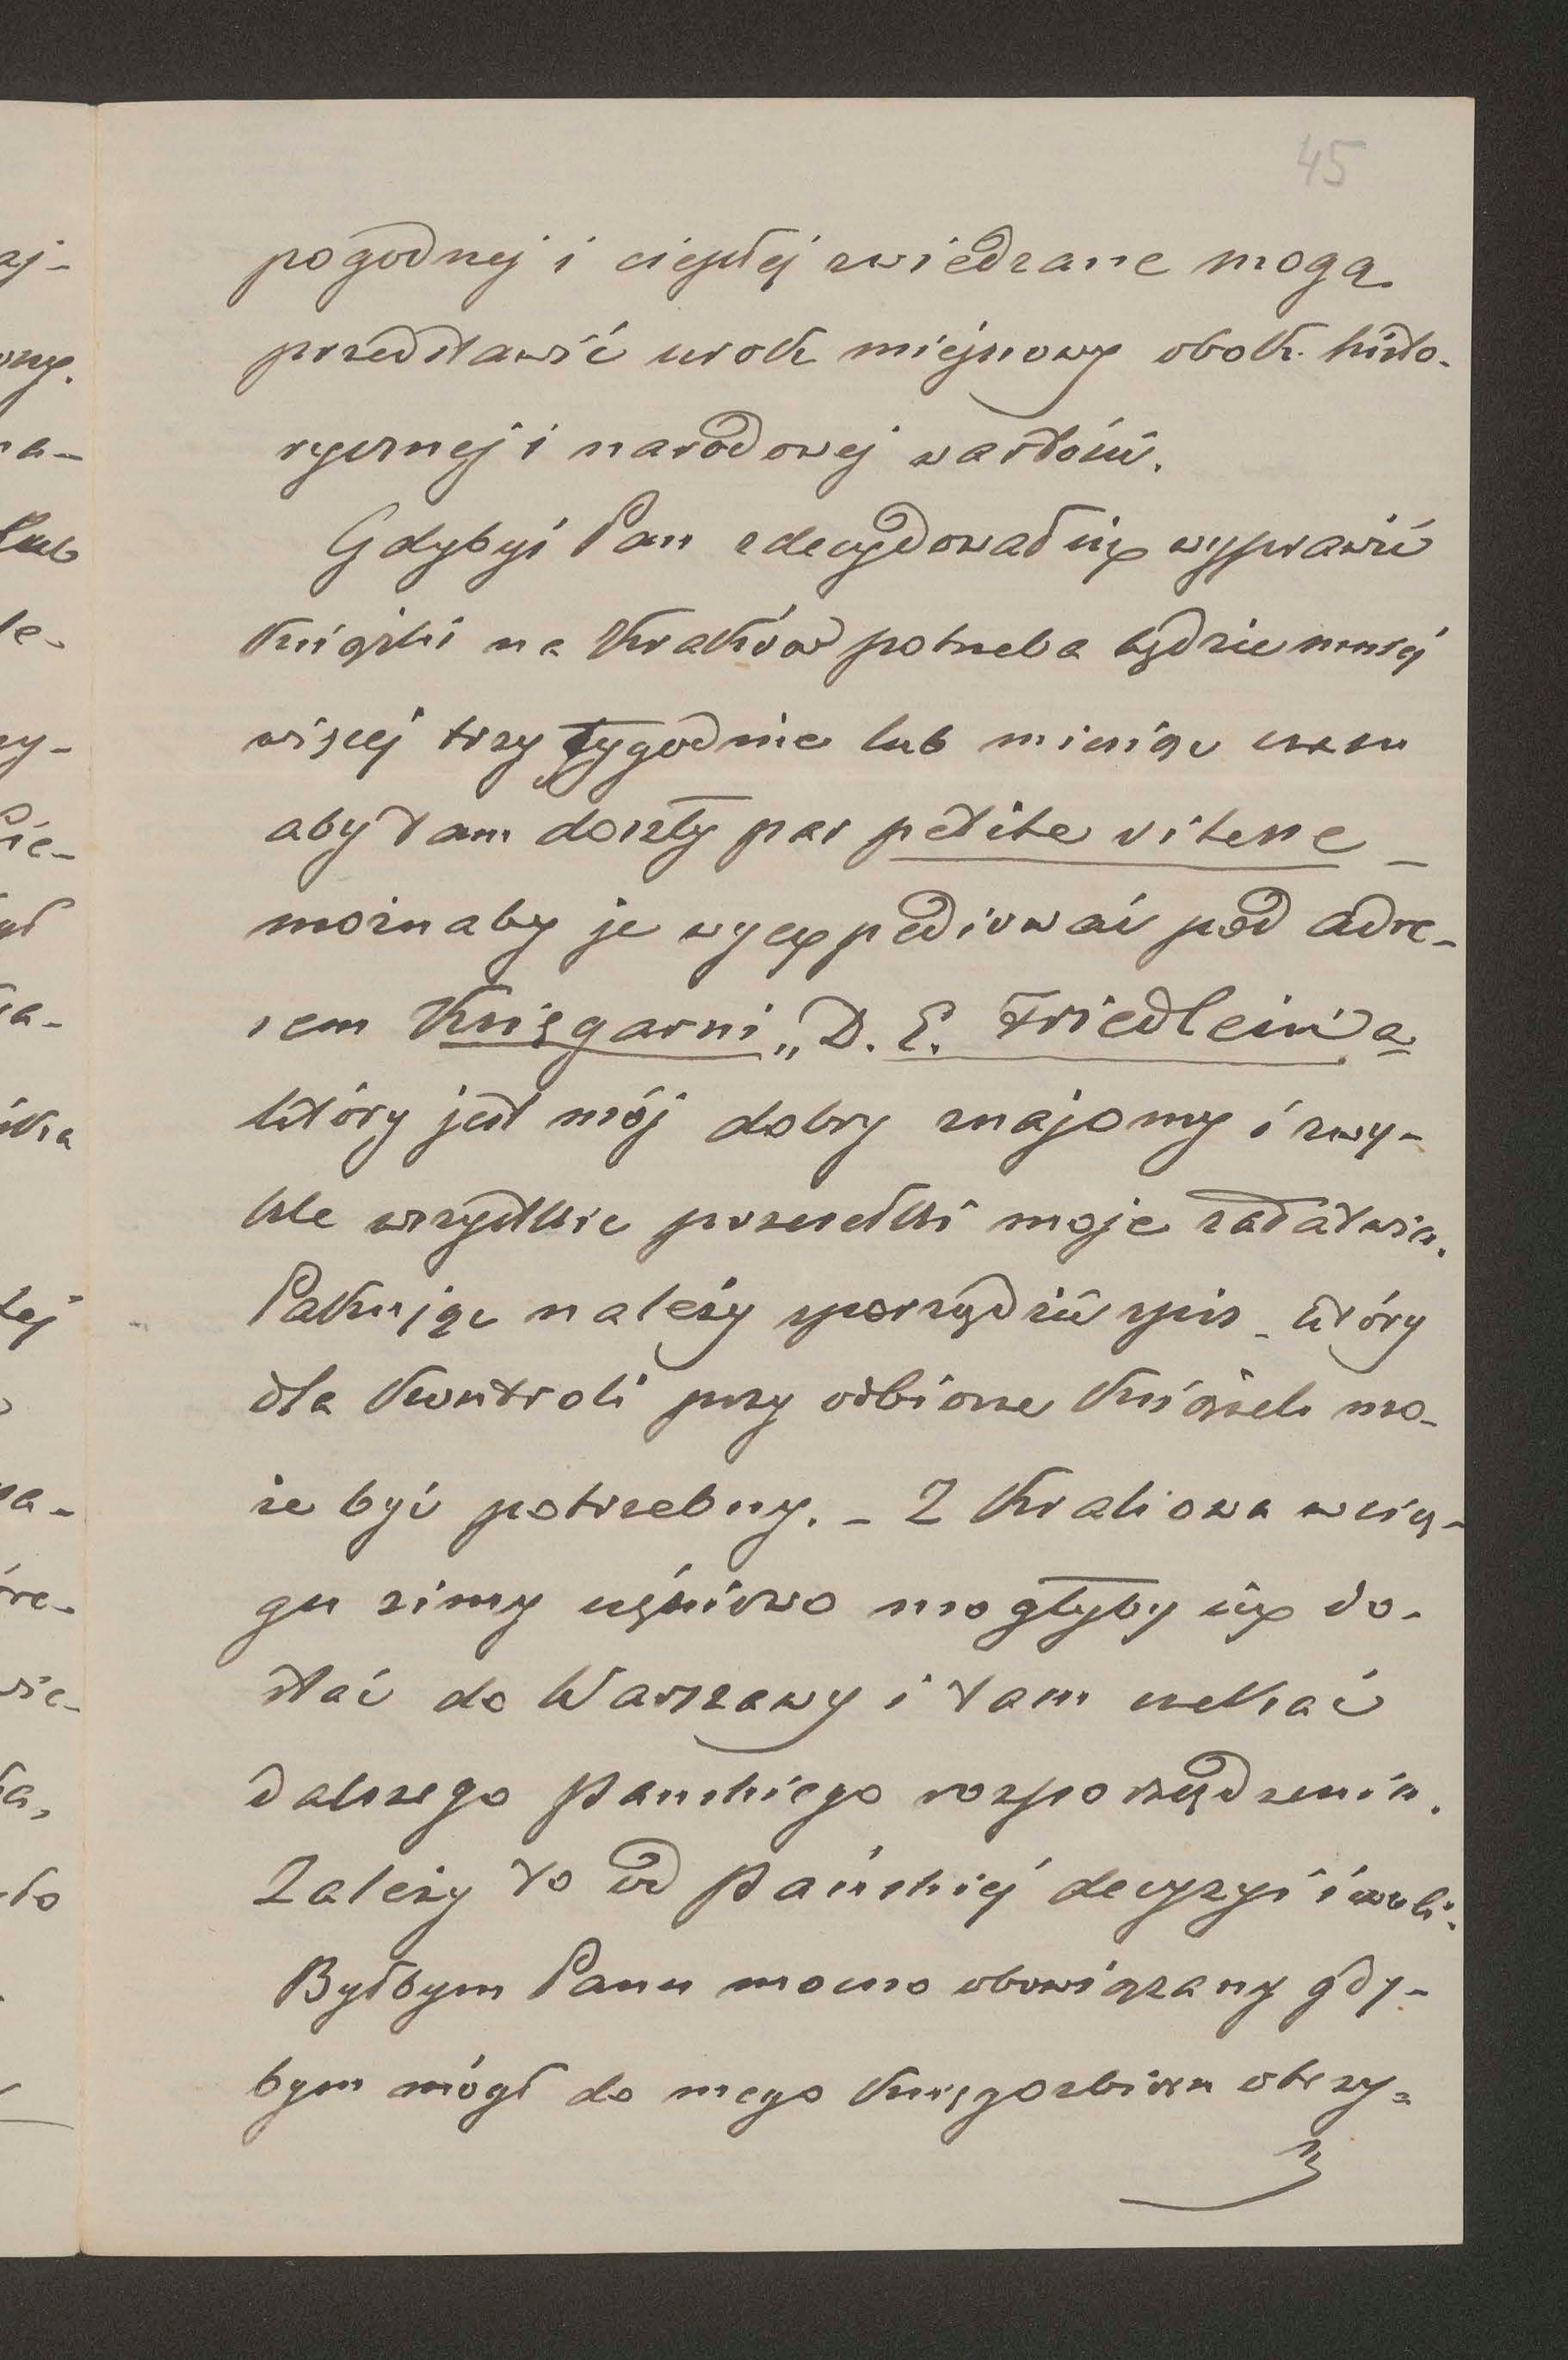 45
pogodnej i ciepłej zwiedzane mogą
przedstawić urok miejscowy obok histo-
rycznej i narodowej wartości.
Gdybyś Pan zdecydował się wyprawić
książki na Kraków potrzeba będzie mniej
więcej trzy tygodnie lub miesiąc czasu
aby tam doszły par petite vitesse –
możnaby je wyexpediować pod adre-
sem Księgarni „D. E. Friedlein'a
który jest mój dobry znajomy i zwy-
kle wszystkie przesełki moje załatwia.
Pakując należy sporządzić spis – który
dla kontroli przy odbiorze książek mo-
że być potrzebny. – Z Krakowa w cią-
gu zimy częściowo mogłyby się do-
stać do Warszawy i tam czekać
dalszego Pańskiego rozporządzenia.
Zależy to od Pańskiej decyzyi i woli.
Byłbym Panu mocno obowiązany gdy-
bym mógł do mego księgozbioru otrzy=
aj-
na-
Lub
le-
zy-
ła-
tej
re-
ła,
ło